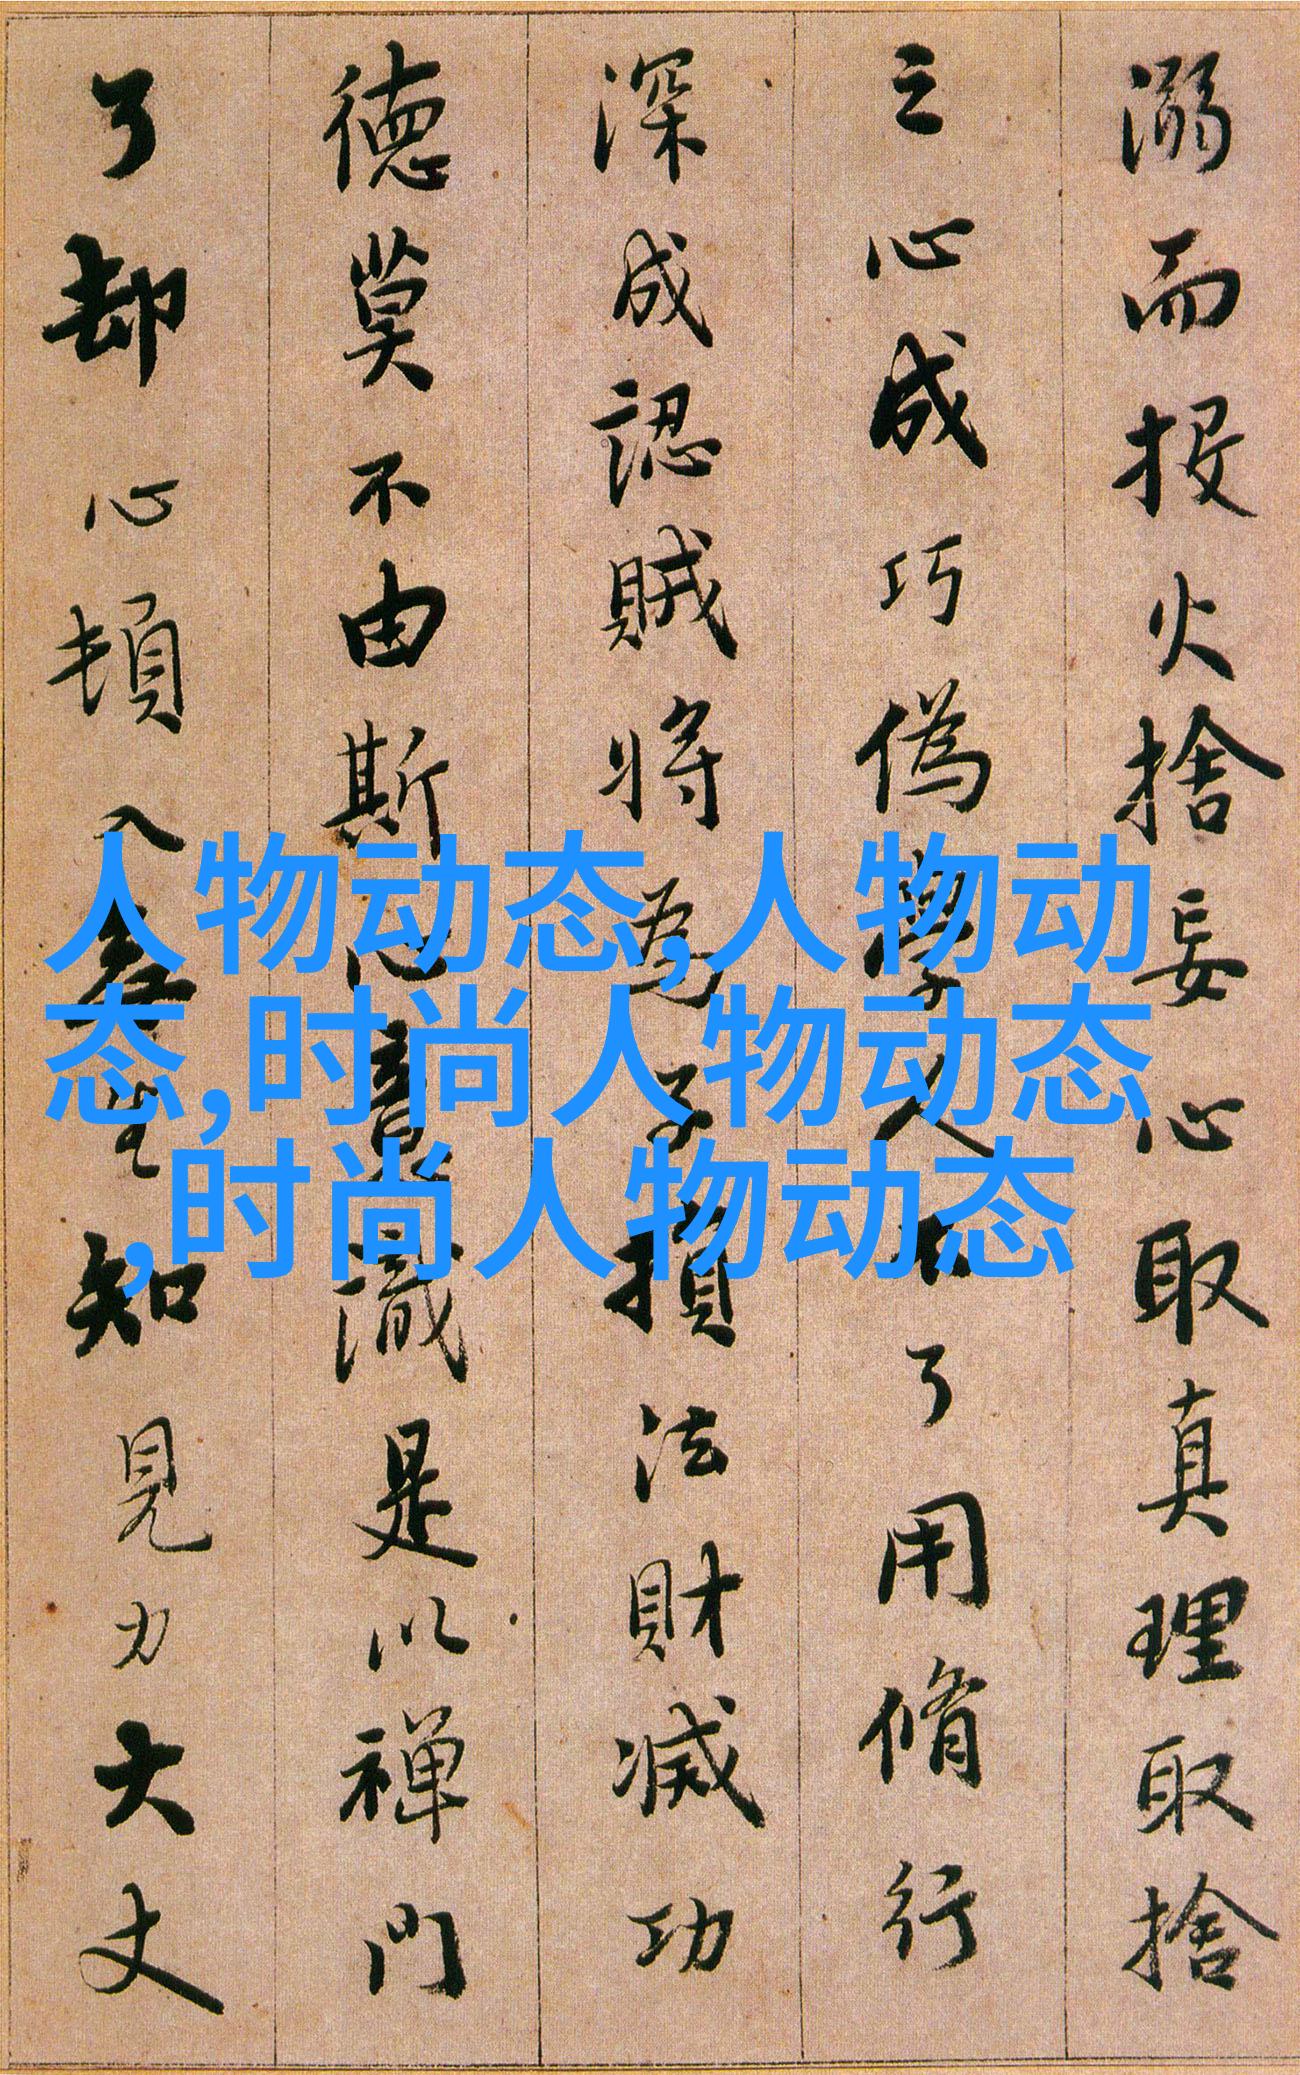 溺而投火捨妄心取真理取捨
之心成巧偽學人不了用脩行
深成認賊將為子損法財滅功
德莫不由斯心意識是以禪門
了却心頓入無生知見力大丈
人物动态,人物动
态,时尚人物动态
,时尚人物动态